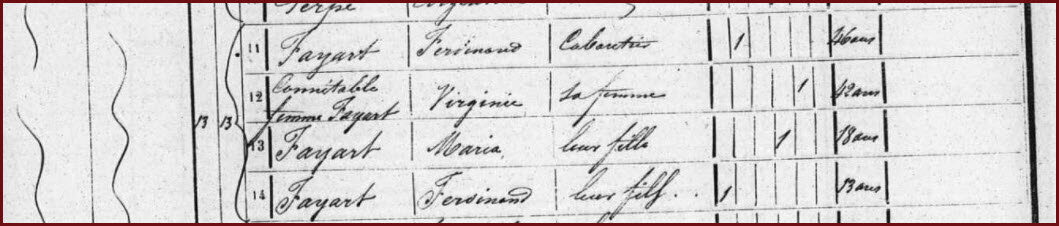 Serpe
11 Fayart Ferdinand Cabaretier 1 46 ans
12 Connétable femme Fayart Virginie Sa femme 1 42 ans
13 13 13 Fayart Maria leur fille 1 18 ans
14 Fayart Ferdinand leur fils. 1 13 ans